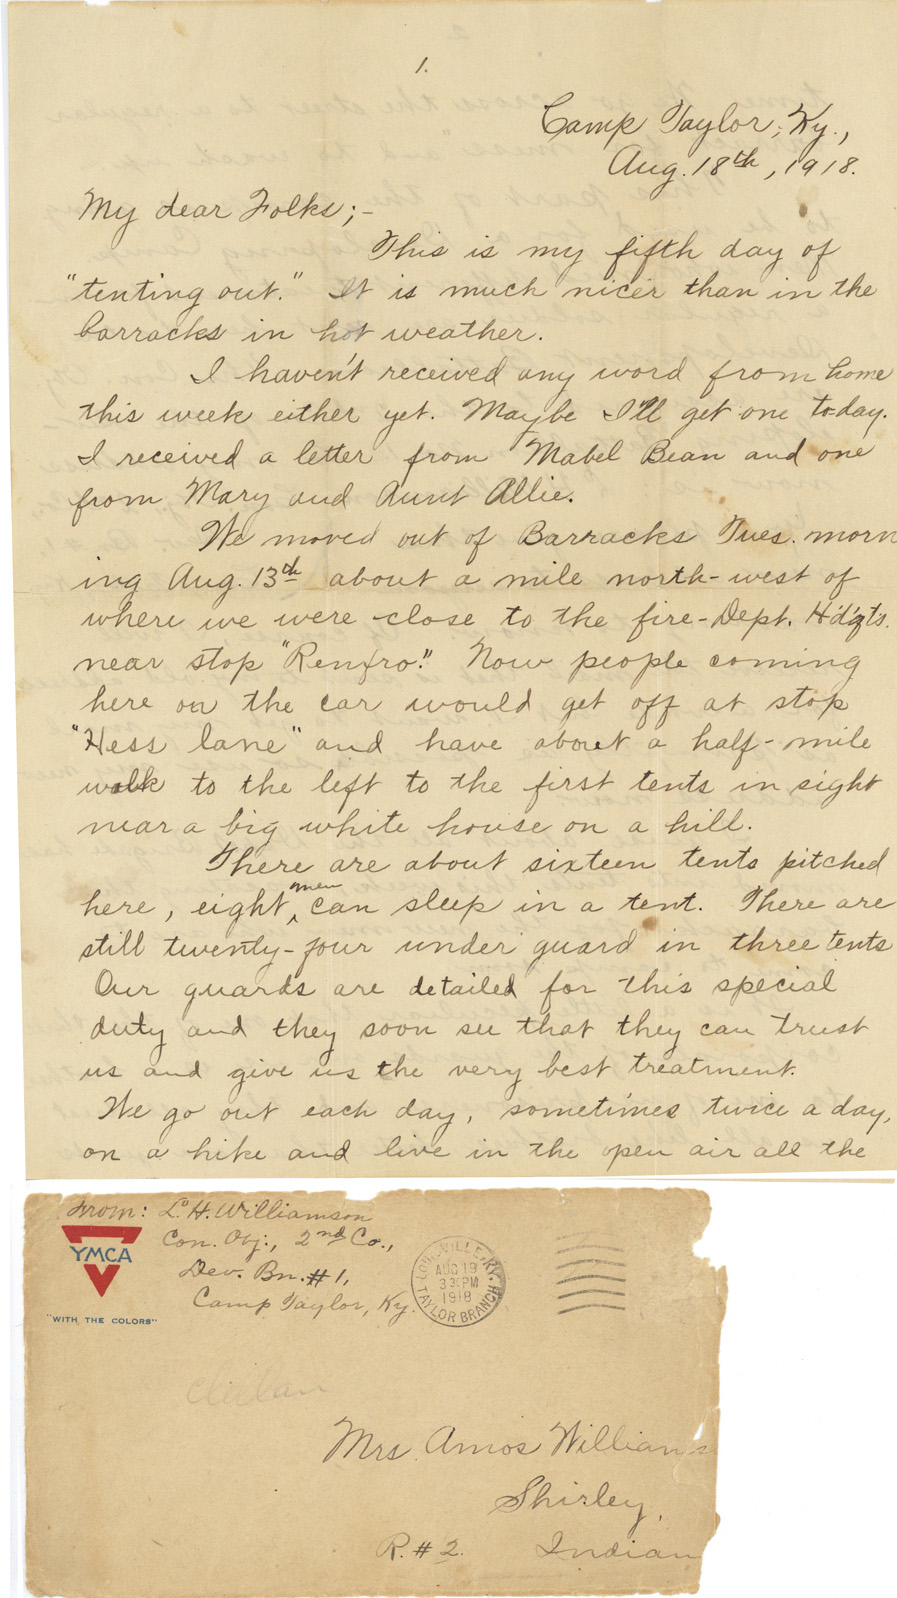 1.
Camp Taylor, Ky.,
Aug. 18th, 1918.
My dear Folks;-
This is my fifth day of
"tenting out." It is much nicer than in the
barracks in hot weather.
I haven't received any word from home
this week either yet. Maybe I'll get one to-day.
I received a letter from Mabel Bean and one
from Mary and Aunt Allie.
We moved out of Barracks Tues. morn
ing Aug. 13th about a mile north-west of
where we were close to the fire-Dept. Hd'qt's.
near stop "Renfro." Now people coming
here on the car would get off at stop
"Hess lane" and have about a half-mile
walk to the left to the first tents in sight
near a big white house on a hill.
There are about sixteen tents pitched
here, eight men can sleep in a tent. There are
still twenty-four under guard in three tents
Our guards are detailed for this special
duty and they soon see that they can trust
us and give us the very best treatment.
We go out each day, sometimes twice a day,
on a hike and live in the open air all the
From: L. H. Williamson
Con. Obj., 2nd Co.,
Dev. Bn. #1,
Camp Taylor, Ky.
YMCA
"WITH THE COLORS"
LOUISVILLE, KY.
AUG 19
3 30 PM
1918
TAYLOR BRANCH
Mrs. Amos Williams
Shirley,
R. #2. Indian